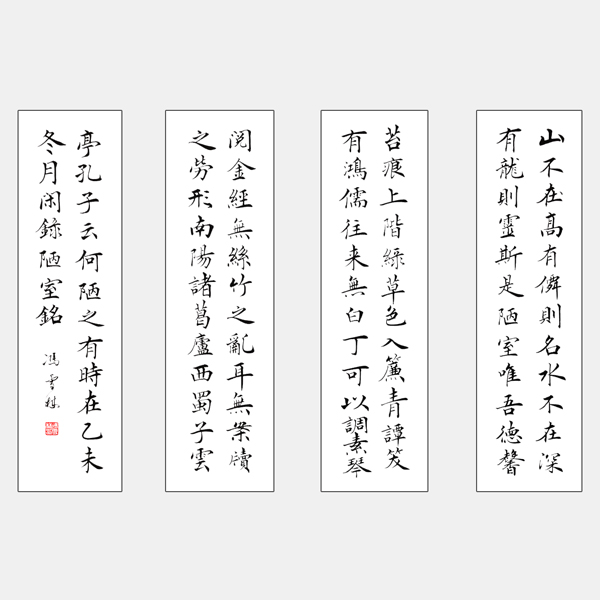 山不在高有僊則名水不在深
有龍則靈斯是陋室唯吾德馨
苔痕上階綠草色入簾青譚笑
有鴻儒往来無白丁可以調素琴
閲金經無絲竹之亂耳無案牘
之勞形南陽諸葛廬西蜀子雲
亭孔子云何陋之有時在乙未
冬月闲錄陋室銘
冯雪